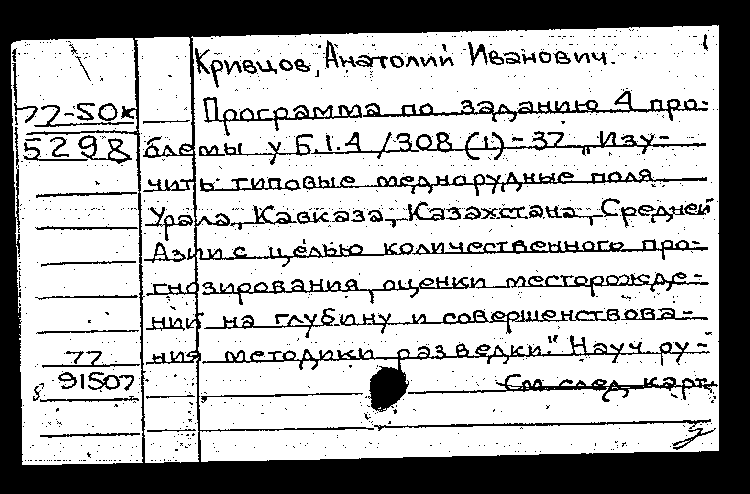 1
Кривцов, Анатолий Иванович.
77-50к Программа по заданию 4 про-
5298 блемы у Б.1.4 /308 (1)-37 „Изу-
чить типовые меднорудные поля
Урала, Кавказа, Казахстана, Средней
Азии с целью количественного про-
гнозирования, оценки месторожде-
ний на глубину и совершенствова-
77 ния методики разведки." Науч. ру-
91507 См. след. карт.